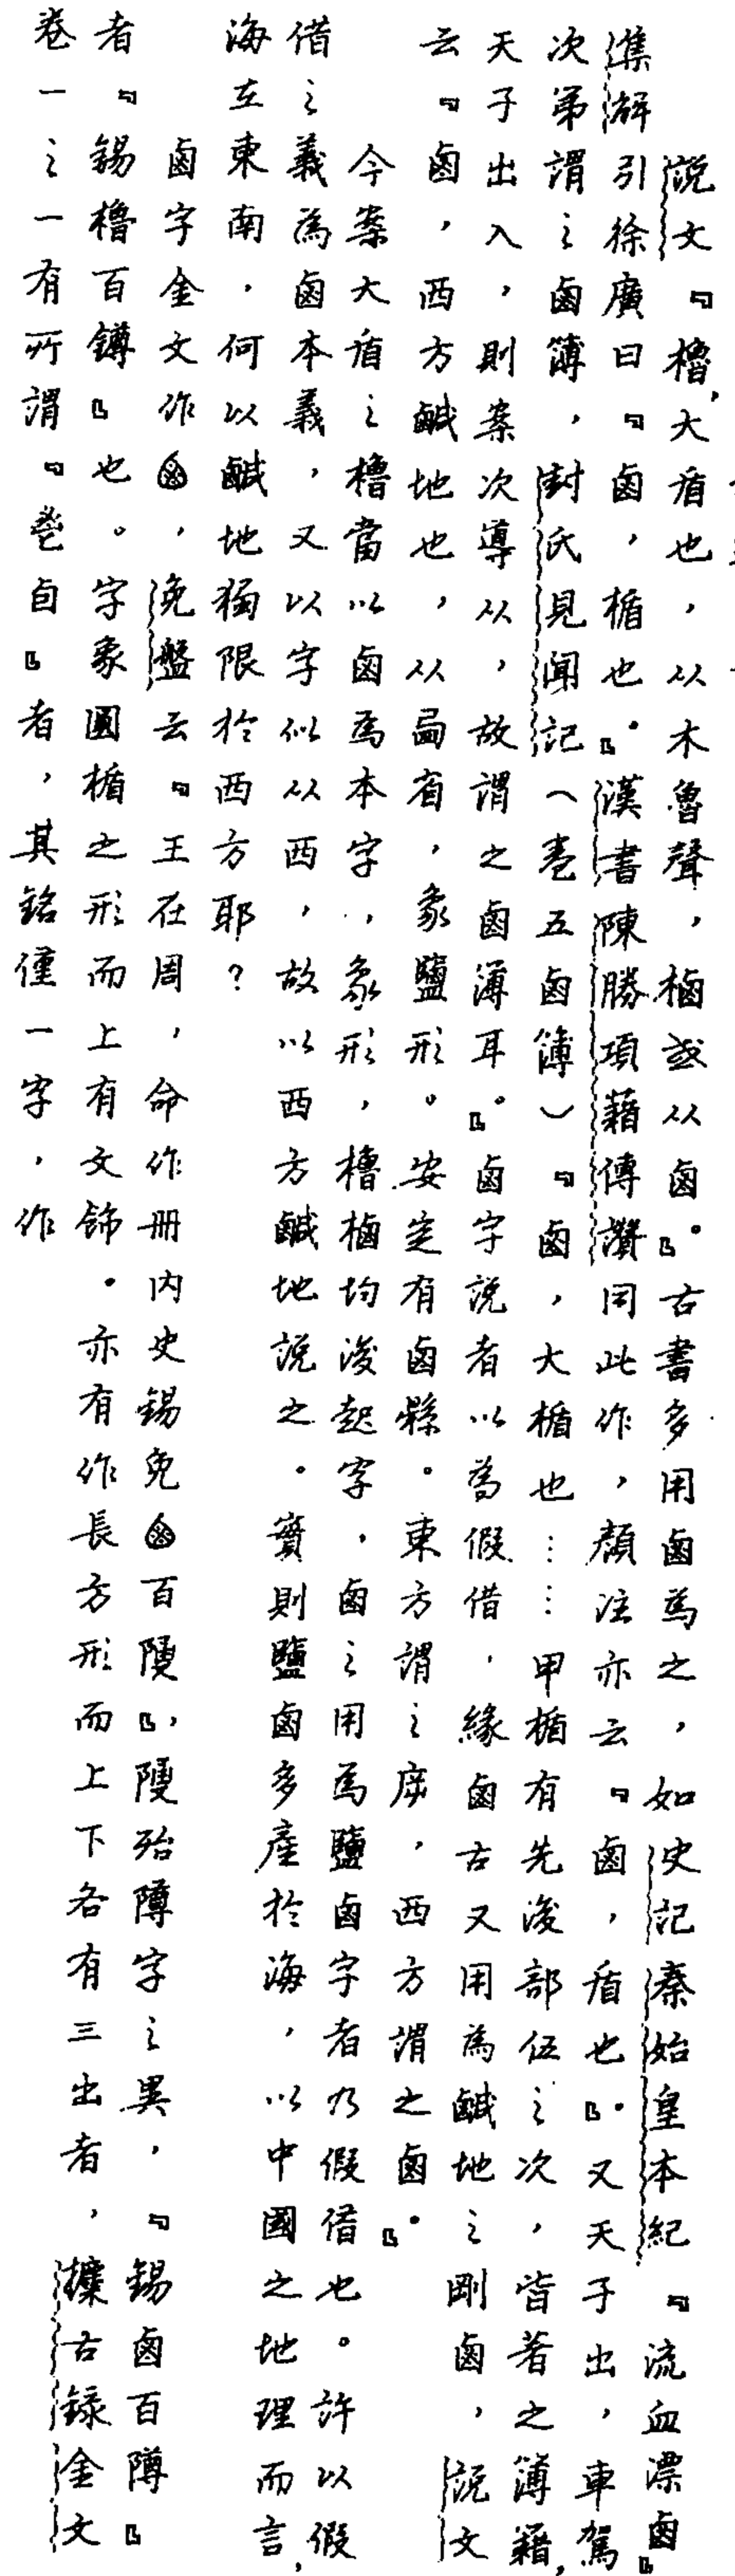 說文『櫓，大盾也，从木魯聲，樐或从鹵。』古書多用鹵為之，如史記秦始皇本紀『流血漂鹵。』
集解引徐廣曰『鹵，楯也。』漢書陳勝項籍傳讚同此作，顏注亦云『鹵，盾也。』又天子出，車駕
次第謂之鹵簿，封氏見聞記（卷五鹵簿）『鹵，大楯也……甲楯有先後部伍之次，皆著之簿籍，
天子出入，則案次導从，故謂之鹵簿耳。』鹵字說者以為假借，緣鹵古又用為鹹地之剛鹵，說文
云『鹵，西方鹹地也，从㢴省，象鹽形。安定有鹵縣。東方謂之㡿，西方謂之鹵。』
今案大盾之櫓當以鹵為本字，象形，櫓樐均後起字，鹵之用為鹽鹵字者乃假借也。許以假
借之義為鹵本義，又以字似从西，故以西方鹹地說之。實則鹽鹵多產於海，以中國之地理而言，
海在東南，何以鹹地獨限於西方耶？
鹵字金文作，免盤云『王在周，命作冊內史錫免百𨼤』，𨼤殆𨻵字之異，『錫鹵百𨻵』
者『錫櫓百鐏』也。字象圓楯之形而上有文飾。亦有作長方形而上下各有三出者，攈古錄金文
卷一之一有所謂『自』者，其銘僅一字，作